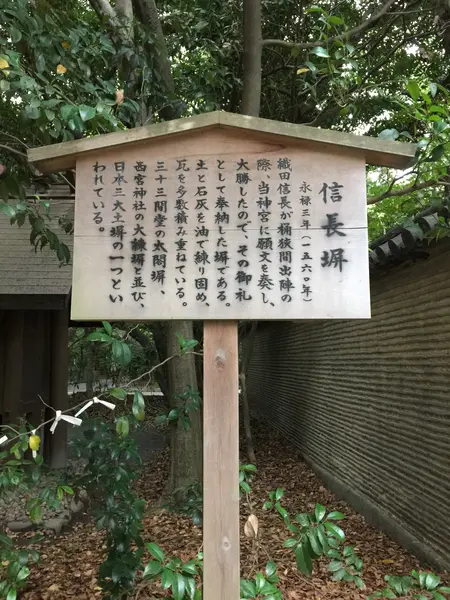 信長塀
永禄三年(一五六〇年)
織田信長が桶狭間出陣の
際、当神宮に願文を奏し、
大勝したので、その御礼
として奉納した塀である。
土と石灰を油で練り固め、
瓦を多数積み重ねている。
三十三間堂の太閤塀、
西宮神社の大練塀と並び、
日本三大土塀の一つとい
われている。